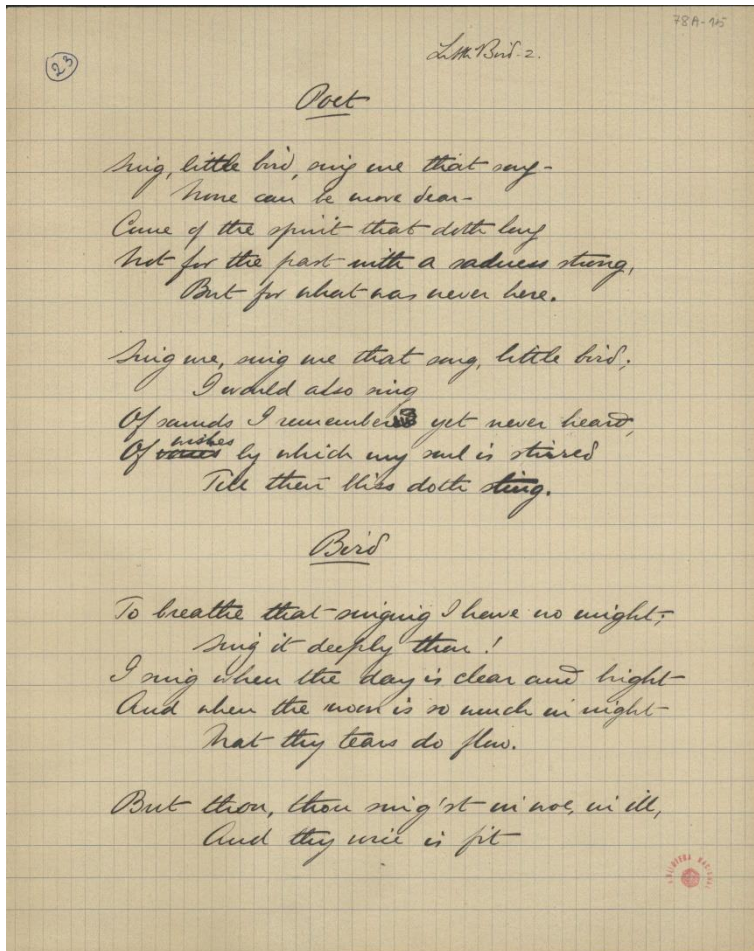 78A-15
23
Little Bird-2.
Poet
Sing, little bird, sing me that song-
None can be more dear-
Came of the spirit that doth long
Not for the past with a sadness strong,
But for what was never here.
Sing me, sing me that song, little bird;
I would also sing
Of sounds I remember yet never heard,
Of wishes by which my soul is stirred
Till their bliss doth sting.
Bird
To breathe that singing I have no might;
Sing it deeply thou!
I sing when the day is clear and bright
And when the moon is so much in night
That thy tears do flow.
But thou, thou sing'st in woe, in ill,
And thy voice is fit